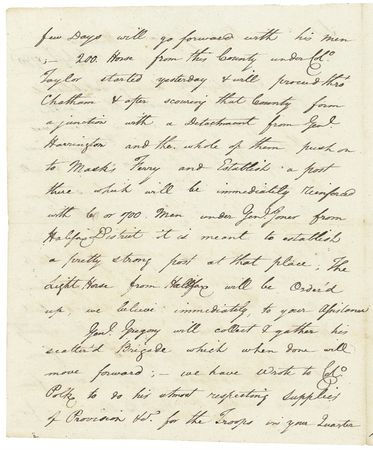 few Days will go forward with his men
;- 200. Horse from this County under Colo.
Taylor started yesterday & will proceed thro'
Chatham & after scouring that County form
a junction with a Detachment from Genl.
Harrington and then whole of them push on
to Mask's Ferry and Establish a post
there which will be immediately reinforced
with 6 or 700. Men under Genl. Jones from
Halifax District it is meant to establish
a pretty strong post at that place; The
Light Horse from Hallifax will be Order'd
up we believe immediately, to your Assistance
Genl. Gregory will collect & gather his
scatter'd Brigade which when done will
move forward; - we have Wrote to Colo.
Polk to do his utmost respecting supplies
of Provision &c. for the Troops in your Quarter